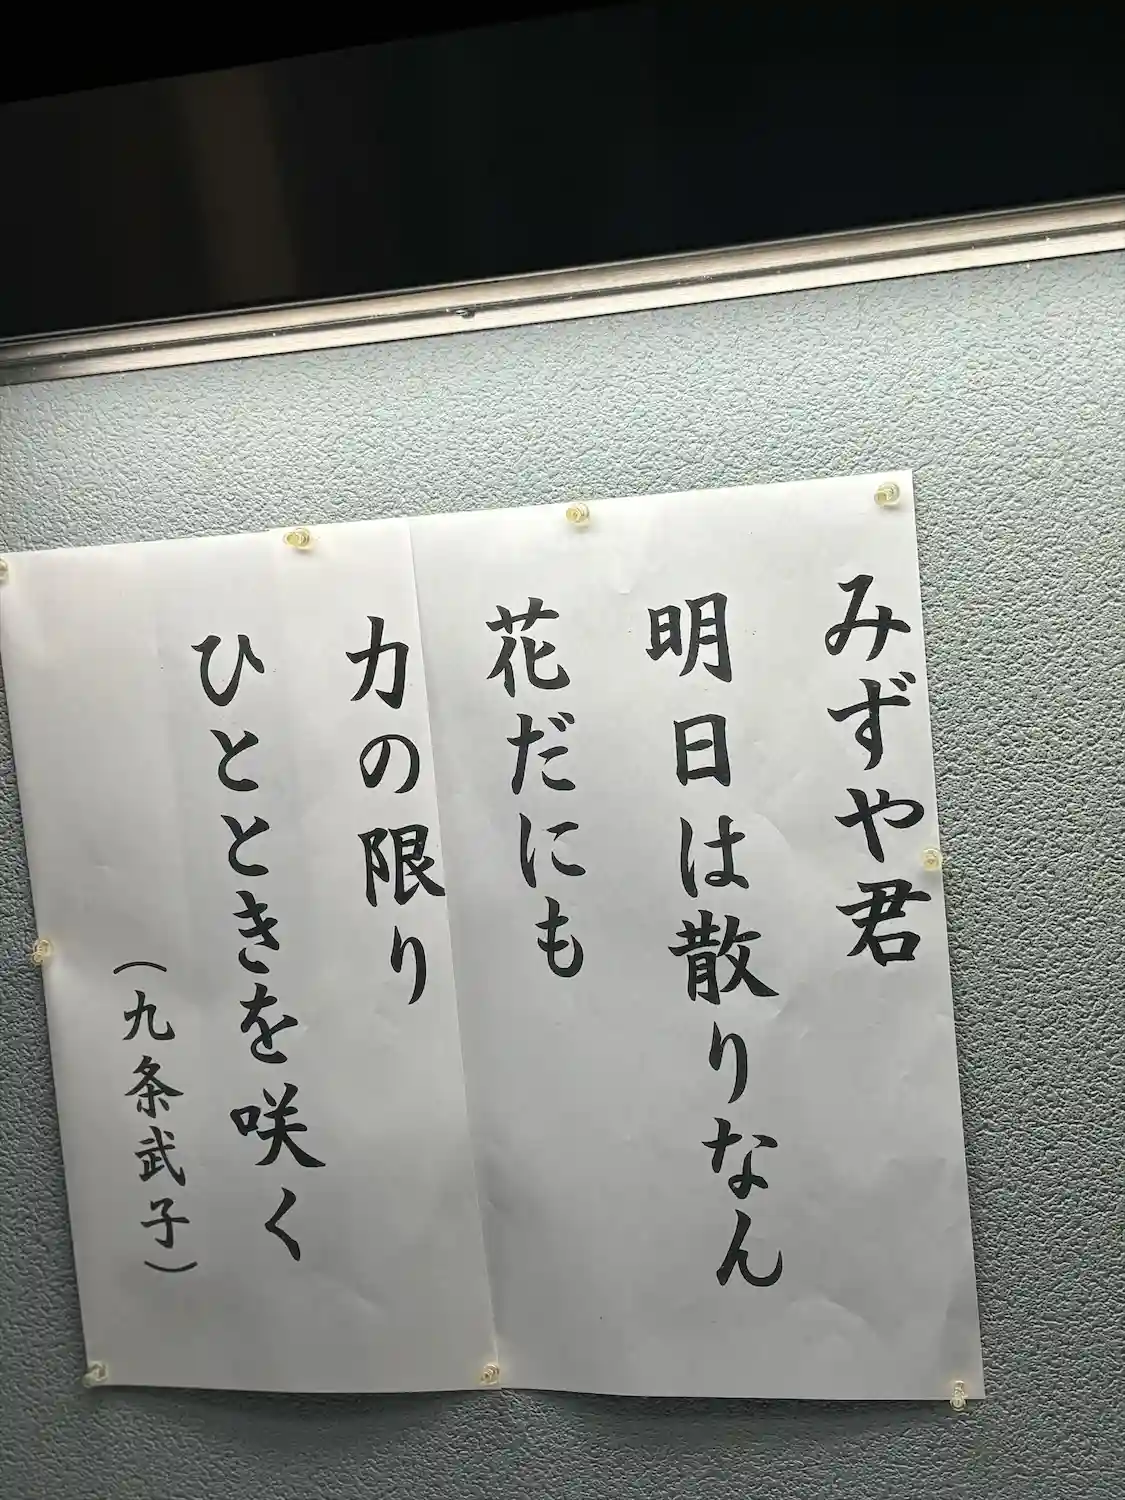 みずや君
明日は散りなん
花だにも
力の限り
ひとときを咲く
（九条武子）